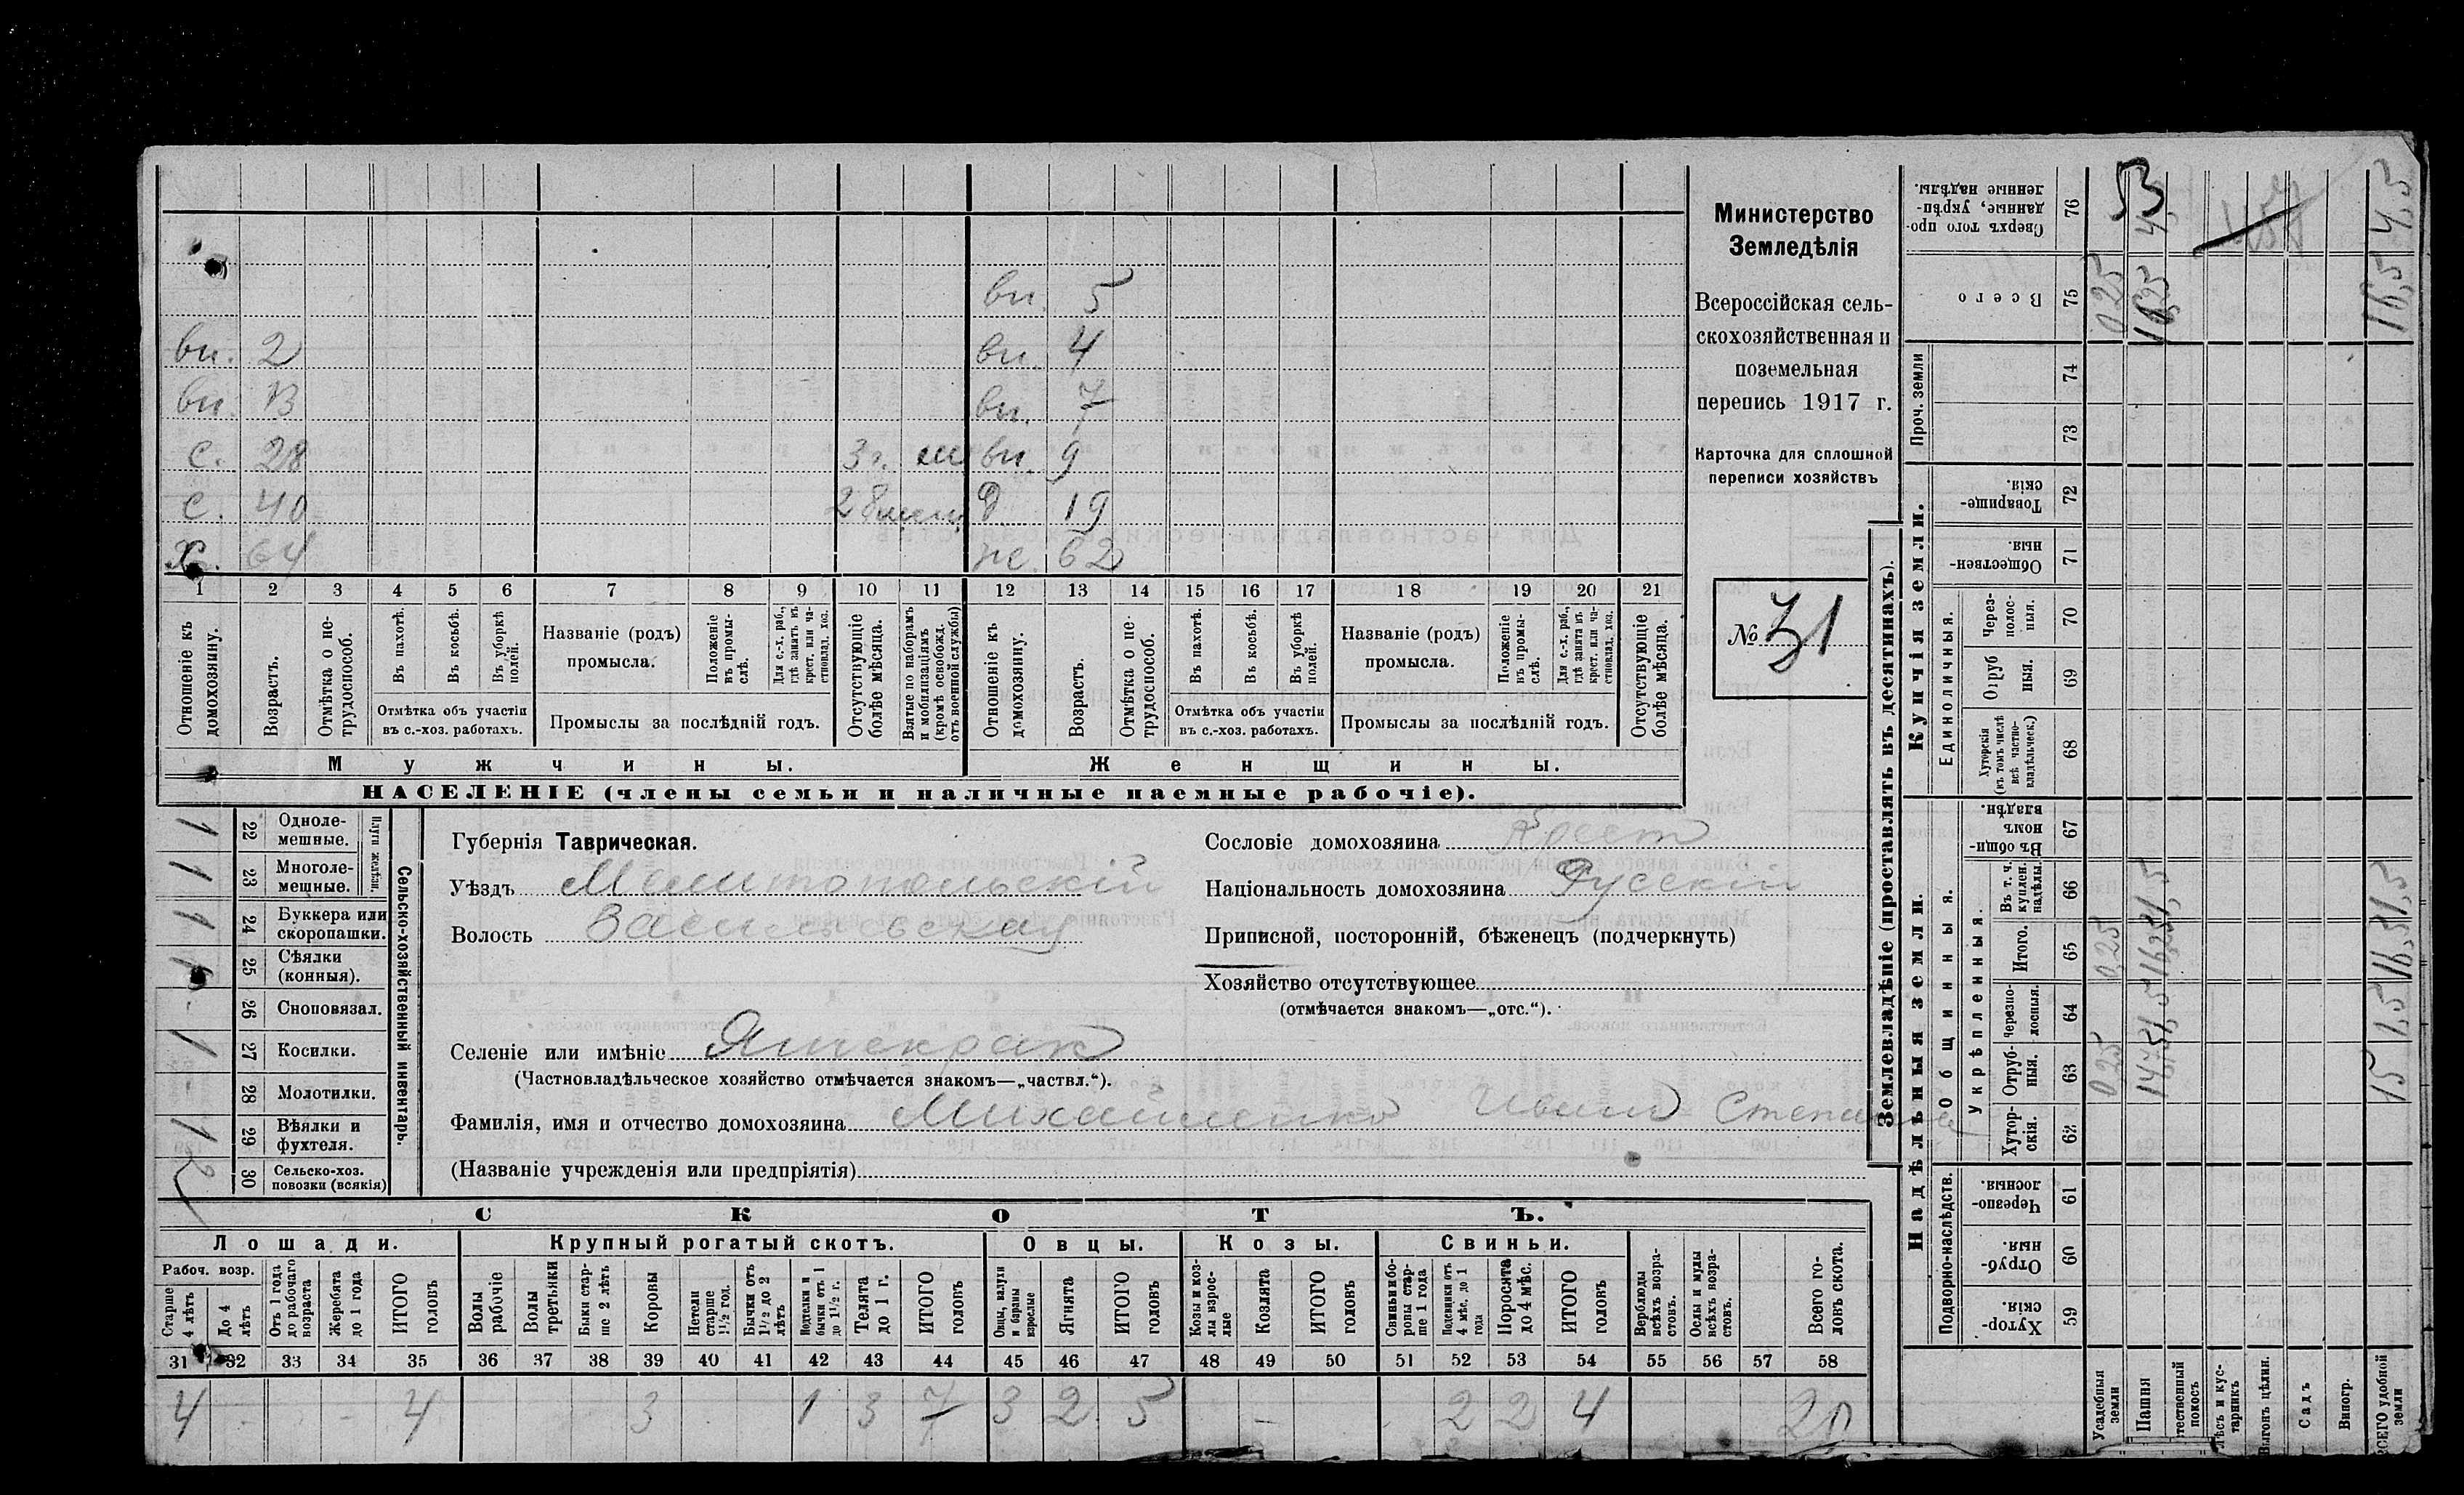 Министерство
Земледѣлія
Всероссійская сель-
скохозяйственная и
поземельная
перепись 1917 г.
Карточка для сплошной
переписи хозяйствъ
№ 31
вн. 5
вн. 2 вн. 4
вн. 13 вн. 7
с. 28 3 г. вн. 9
с. 40 2 д 19
х. 64 ж. 62
1 2 3 4 5 6 7 8 9 10 11 12 13 14 15 16 17 18 19 20 21
Отношеніе къ домохозяину.
Возрастъ.
Отмѣтка о не-трудоспособ.
Въ пахотѣ.
Въ косьбѣ.
Въ уборкѣ полей.
Отмѣтка объ участіи въ с.-хоз. работахъ.
Названіе (родъ) промысла.
Положеніе въ промы-слѣ.
Для с.-х. раб., гдѣ занятъ въ крест. или ча-стновлад. хоз.
Промыслы за послѣдній годъ.
Отсутствующіе болѣе мѣсяца.
Взятые по наборамъ и мобилизаціямъ (кромѣ освобожд. отъ военной службы)
Отношеніе къ домохозяину.
Возрастъ.
Отмѣтка о не-трудоспособ.
Въ пахотѣ.
Въ косьбѣ.
Въ уборкѣ полей.
Отмѣтка объ участіи въ с.-хоз. работахъ.
Названіе (родъ) промысла.
Положеніе въ промы-слѣ.
Для с.-х. раб., гдѣ занята въ крест. или ча-стновлад. хоз.
Промыслы за послѣдній годъ.
Отсутствующіе болѣе мѣсяца.
Мужчины. Женщины.
НАСЕЛЕНІЕ (члены семьи и наличные наемные рабочіе).
Сельско-хозяйственный инвентарь.
Плуги желѣзн.
1 22 Одноле-мешные.
1 23 Многоле-мешные.
1 24 Буккера или скоропашки.
1 25 Сѣялки (конныя).
- 26 Сноповязал.
1 27 Косилки.
- 28 Молотилки.
1 29 Вѣялки и фухтеля.
2 30 Сельско-хоз. повозки (всякія)
Губернія Таврическая.
Уѣздъ Мелитопольскій
Волость Васильевская
Сословіе домохозяина Крест
Національность домохозяина Русскій
Приписной, посторонній, бѣженецъ (подчеркнуть)
Хозяйство отсутствующее
(отмѣчается знакомъ—„отс.“).
Селеніе или имѣніе Янчекрак
(Частновладѣльческое хозяйство отмѣчается знакомъ—„частвл.“).
Фамилія, имя и отчество домохозяина Михайленко Иван Степанов
(Названіе учрежденія или предпріятія)
СКОТЪ.
Лошади. Крупный рогатый скотъ. Овцы. Козы. Свиньи.
Рабоч. возр.
Старше 4 лѣтъ
До 4 лѣтъ
Отъ 1 года до рабочаго возраста
Жеребята до 1 года
ИТОГО головъ
Волы рабочіе
Волы третьяки
Быки стар-ше 2 лѣтъ
Коровы
Нетели старше 1 1/2 год.
Бычки отъ 1 1/2 до 2 лѣтъ
Подтелки и бычки отъ 1 до 1 1/2 г.
Телята до 1 г.
ИТОГО головъ
Овцы, валухи и бараны взрослые
Ягнята
ИТОГО головъ
Козы и коз-лы взрос-лые
Козлята
ИТОГО головъ
Свиньи и бо-ровы стар-ше 1 года
Подсвинки отъ 4 мѣс. до 1 года
Поросята до 4 мѣс.
ИТОГО головъ
Верблюды всѣхъ возра-стовъ.
Ослы и мулы всѣхъ возра-стовъ.
Всего го-ловъ скота.
31 32 33 34 35 36 37 38 39 40 41 42 43 44 45 46 47 48 49 50 51 52 53 54 55 56 57 58
4 - - 4 3 1 3 7 3 2 5 - 2 2 4 20
Землевладѣніе (проставлять въ десятинахъ).
Надѣльныя земли.
Купчія земли.
Проч. земли
Подворно-наслѣдств.
Общинныя.
Укрѣпленныя.
Единоличныя.
59 Хутор-скія.
60 Отруб-ныя.
61 Черезпо-лосныя.
62 Хутор-скія.
63 Отруб-ныя.
64 Черезпо-лосныя.
65 Итого.
66 Въ т. ч. куплен. надѣлы.
67 Въ общи-номъ владѣн.
68 Хуторскія (въ томъ числѣ всѣ частно-владѣльческ.)
69 Отруб ныя.
70 Через-полос-ныя.
71 Обществен-ныя.
72 Товарище-скія.
73
74
75 Всего
76 Сверхъ того про-данные, укрѣп-ленные надѣлы.
Усадебныя земли 0,25 0,25 0,25
Пашня 14,75 1,5 16,25 1,5 16,25 4,5
Естественный покосъ
Лѣсъ и кус-тарникъ
Выгонъ цѣлин.
Садъ
Виногр.
ВСЕГО удобной земли 15 1,5 16,5 1,5 16,5 4,5
53
457